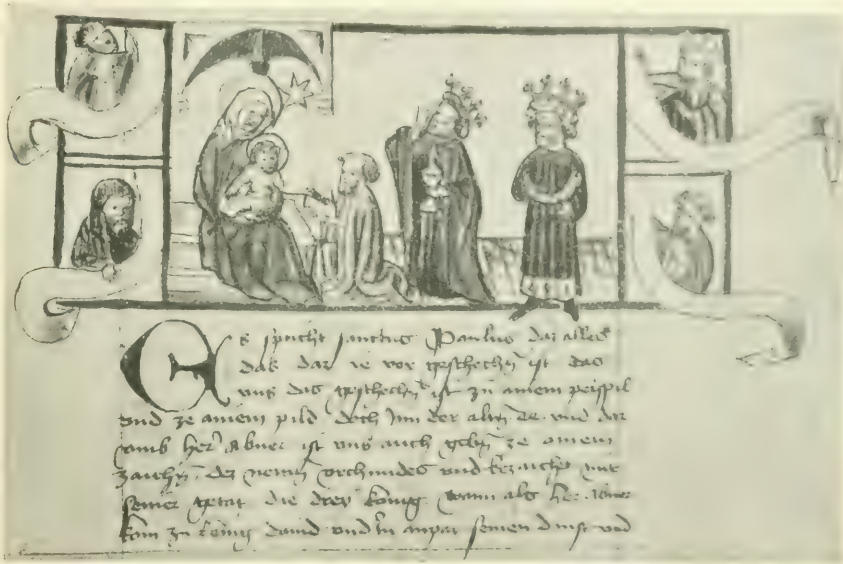 Es spricht sanctus Paulus daz alles
daz daz ie vor geschechn ist das
uns das geschechn ist zu ainem peispil
und ze ainem pild doch inn der altn ee und dar
umb her Abner ist uns auch gebn ze ainem
zaichn des newen vrchundes und bezaichet mit
seiner getat die drey konig wann als her Abner
kom zu konig david und im anpat seinen dinst und